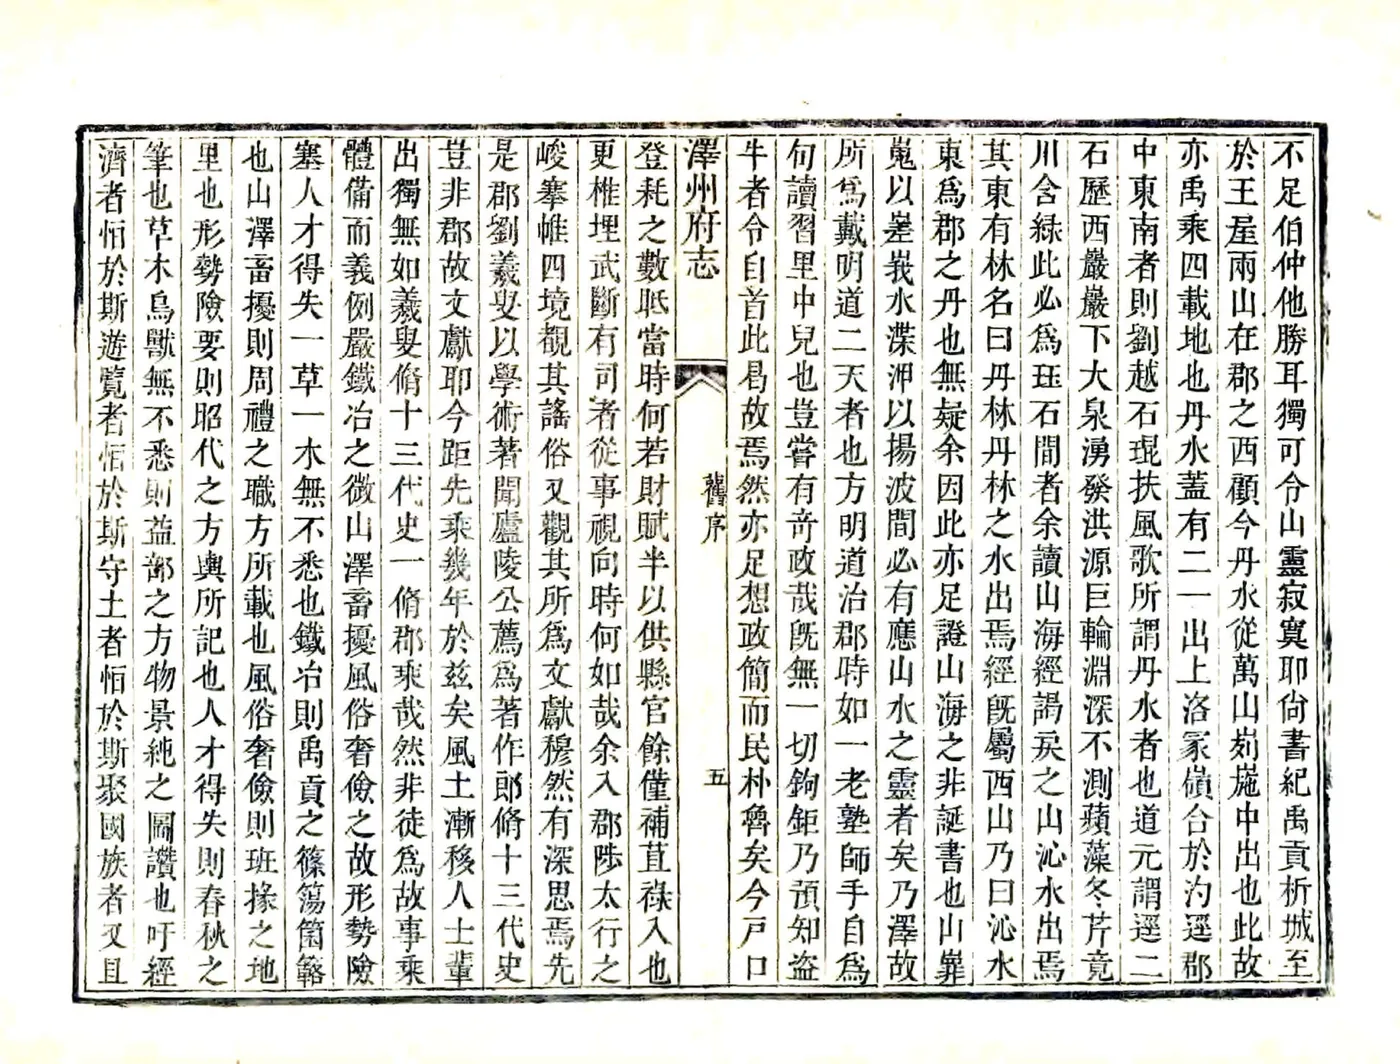 不足伯仲他勝耳獨可令山靈寂寞耶尙書紀禹貢析城至
於王屋兩山在郡之西顧今丹水從萬山剡施中出也此故
亦禹乘四載地也丹水蓋有二一出上洛冢嶺合於汋逕郡
中東南者則劉越石琨扶風歌所謂丹水者也道元謂逕二
石歷西巖巖下大泉湧發洪源巨輪淵深不測蘋藻冬芹竟
川含綠此必爲珏石間者余讀山海經謁戾之山沁水出焉
其東有林名曰丹林丹林之水出焉經旣屬西山乃曰沁水
東爲郡之丹也無疑余因此亦足證山海之非誕書也山崋
嵬以崣峩水渫渆以揚波間必有應山水之靈者矣乃澤故
所爲戴明道二天者也方明道治郡時如一老塾師手自爲
句讀習里中兒也豈嘗有竒政哉旣無一切鉤鉅乃預知盜
牛者令自首此曷故焉然亦足想政簡而民朴魯矣今戸口
澤州府志
舊序
五
登耗之數眂當時何若財賦半以供縣官餘僅補苴祿入也
更椎埋武斷有司者從事視向時何如哉余入郡陟太行之
峻搴帷四境覩其謠俗又觀其所爲文獻穆然有深思焉先
是郡劉羲叟以學術著聞廬陵公薦爲著作郎脩十三代史
豈非郡故文獻耶今距先乘幾年於兹矣風土漸移人士輩
出獨無如羲叟脩十三代史一脩郡乘哉然非徒爲故事乘
體備而義例嚴鐵冶之徵山澤畜擾風俗奢儉之故形勢險
塞人才得失一草一木無不悉也鐵冶則禹貢之篠簜箘簬
也山澤畜擾則周禮之職方所載也風俗奢儉則班掾之地
里也形勢險要則昭代之方輿所記也人才得失則春秋之
筆也草木鳥獸無不悉則益部之方物景純之圖讚也吁經
濟者怕於斯遊覽者怕於斯守土者怕於斯聚國族者又且